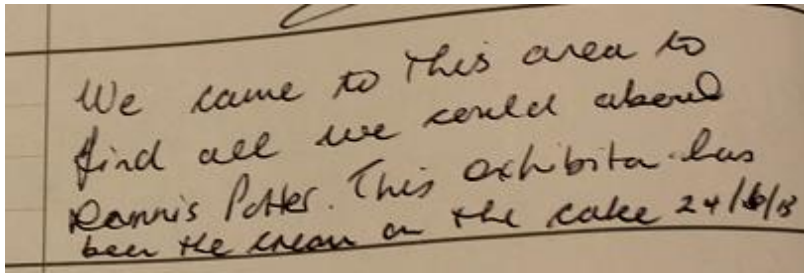 We came to this area to
find all we could about
Dennis Potter. This exhibiton has
been the cream on the cake 24/6/13